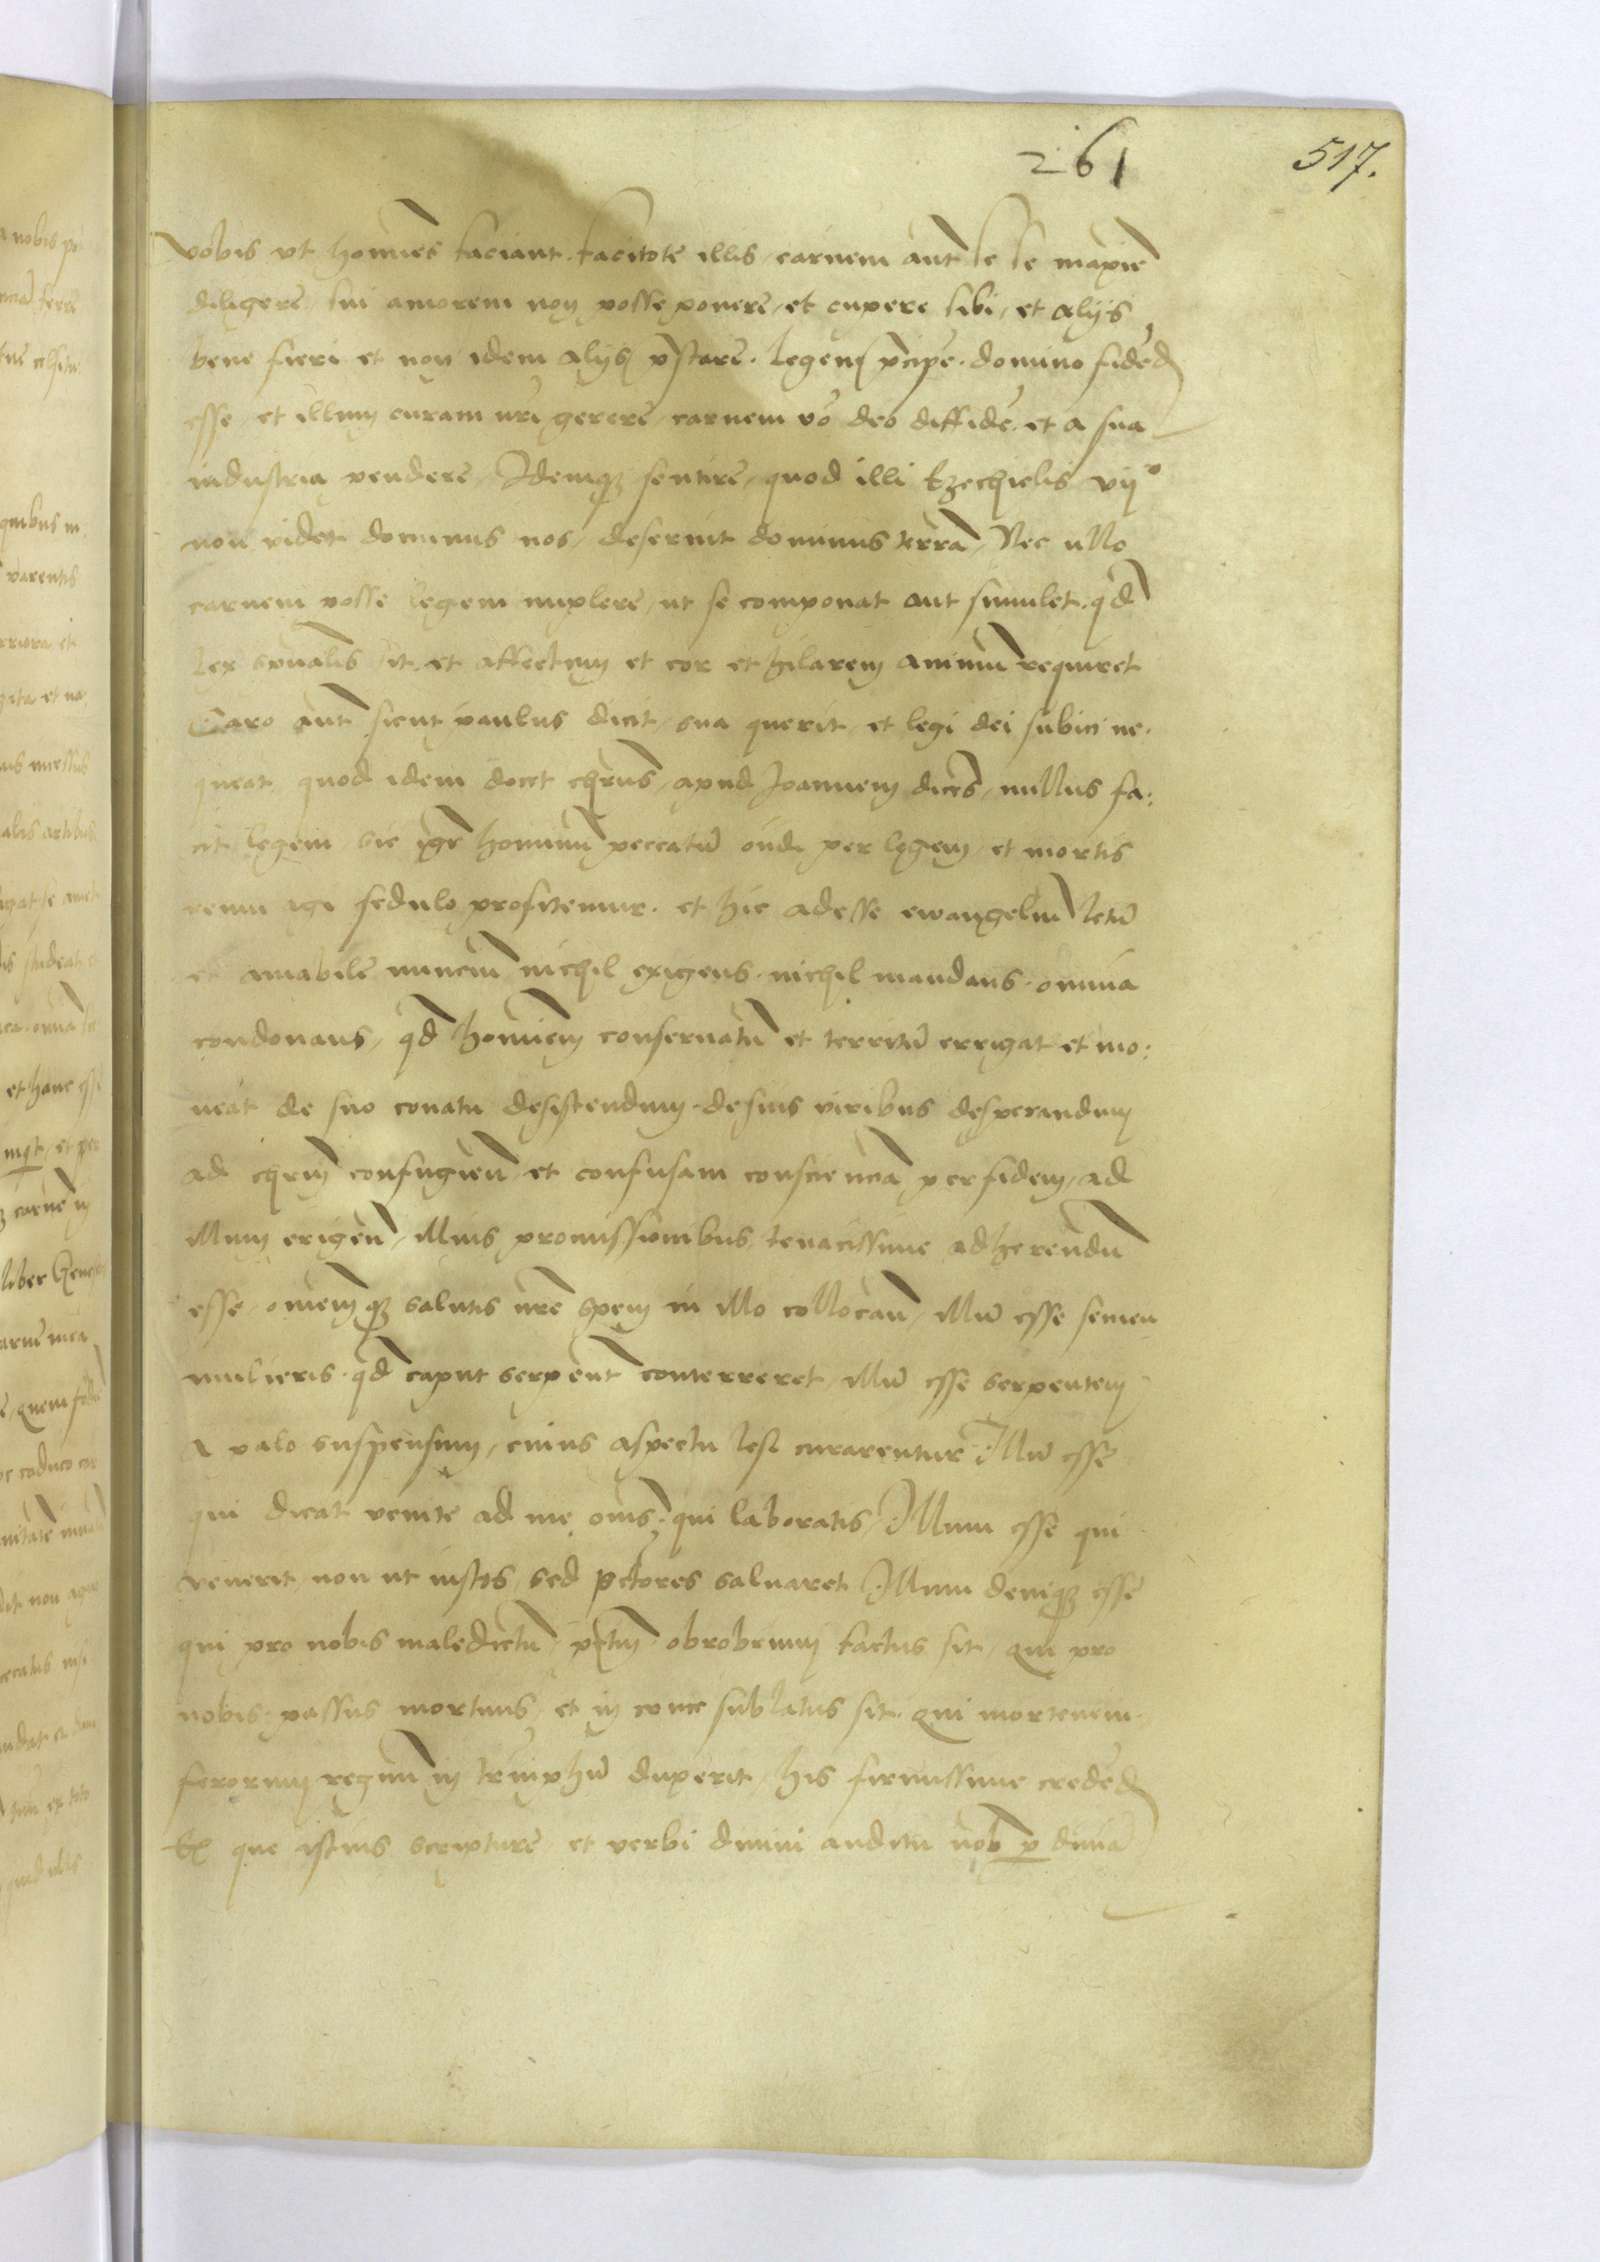 261
517.
vobis ut homīes faciant. facitote illis, carnem aut̄ se se maxīe
diligere, sui amorem non posse ponere, et cupere sibi, et alijs
bene fieri et non idem alijs p̄stare. Legem p̄cipe. domino fidēd
esse, et illum curam nr̄i gerere, carnem vō deo diffidē, et a sua
industria pendere, Idemq₃ sentire, quod illi Ezechielis viijº
non videt dominus nos, deseruit dominus terrā, Nec ullo
carnem posse legem implere, ut se componat aut simulet. qd̄
lex sp̄ualis sit, et affectum et cor et hilarem animū requiret
Caro aut̄ sicut paulus dicit, sua querit, et legi dei subici ne.
queat, quod idem docet chrūs, apud Joannem dicēs, nullus fa:
cit legem, sic igr̄ hominū peccatū ōndi per legem, et mortis
reum agi sedulo profitemur. et hic adesse ewangeliū letū
et amabile nunciū, nichil exigens. nichil mandans. omnia
condonans, qd̄ homīem consernatū et territū errigat et mo:
neat de suo conatu desistendum. de suis viribus desperandum
ad chrm̄ confugiēn̄ et confusam conscienciā per fidem, ad
illum erigēn̄, illius promissionibus tenacissime adherendū
esse, omēmq₃ salutis nr̄e spem in illo collocan̄, illū esse semen
mulieris. qd̄ caput serpent̄ conterreret, illū esse serpentem
a palo suspensum, cuius aspectu lesi curarentur. Illū esse
qui dicat venite ad me om̄s, qui laboratis, Illum esse qui
venerit, non ut iustos, sed pctores salvaret. Illum deniq₃ esse
qui pro nobis maledictū, pctum, obrobrium factus sit, qui pro
nobis, passus mortuus, et in cruce sublatus sit. qui mortem in.
ferorum regnū in triūphū duxerit, his firmissime credēd
Ex que istius scripture, et verbi divini auditu nob̄ p divinā